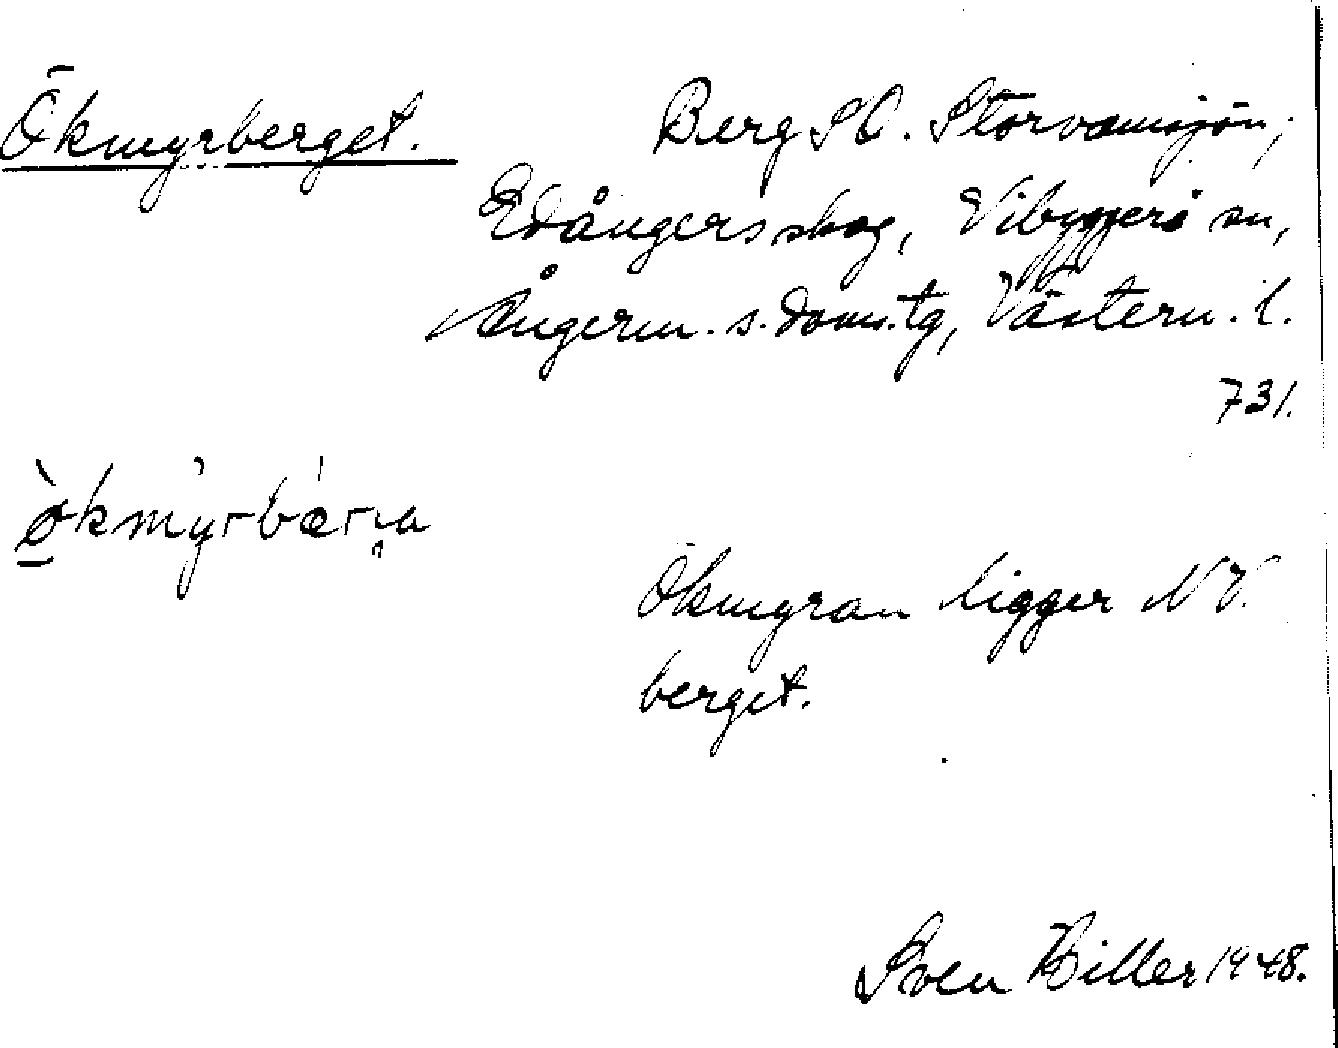 Ökmyrberget. Berg SO. Storvamsjön,
Edångersskog, Vibyggerå sn,
Ångerm. s. doms.tg, Västern. l.
731.
ò̱kmy̍rbær̍ja
Ökmyran ligger NV.
berget.
Sven Hiller 1948.